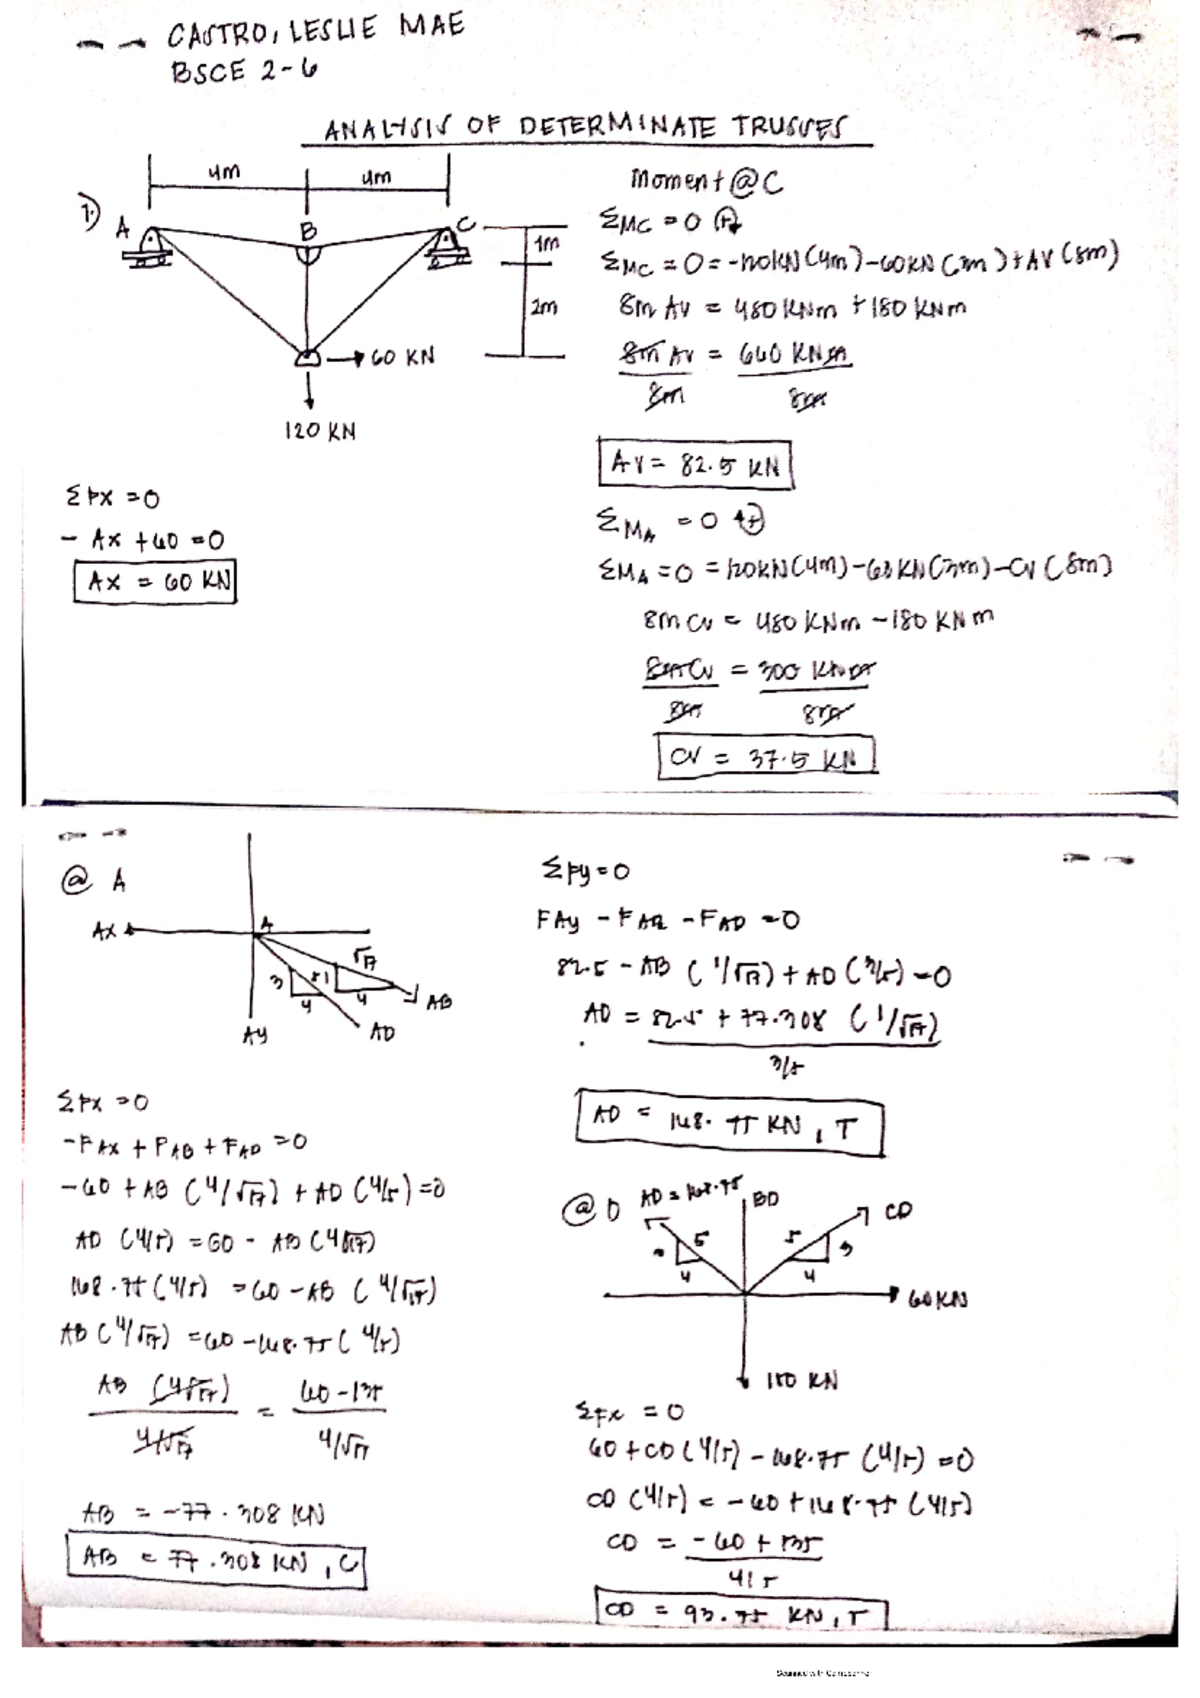 CASTRO, LESLIE MAE
BSCE 2-6
ANALYSIS OF DETERMINATE TRUSSES
4m 4m
1.)
A B C
1m
2m
60 KN
120 KN
ΣFX = 0
- AX + 60 = 0
AX = 60 KN
Moment @ C
ΣMC = 0
ΣMC = 0 = -120KN (4m) - 60KN (3m) + AV (8m)
8m AV = 480 KNm + 180 KNm
8m AV = 660 KNm
8m 8m
AV = 82.5 KN
ΣMA = 0
ΣMA = 0 = 120KN (4m) - 60KN (3m) - CV (8m)
8m CV = 480 KNm - 180 KNm
8m CV = 300 KNm
8m 8m
CV = 37.5 KN
@ A
AX A
√17
3 5 1
4 4
AB
AY AD
ΣFX = 0
-FAX + FAB + FAD = 0
-60 + AB (4/√17) + AD (4/5) = 0
AD (4/5) = 60 - AB (4/√17)
168.75 (4/5) = 60 - AB (4/√17)
AB (4/√17) = 60 - 168.75 (4/5)
AB (4/√17) = 60 - 135
4/√17 4/√17
AB = -77.308 KN
AB = 77.308 KN, C
ΣFy = 0
FAy - FAB - FAD = 0
82.5 - AB (1/√17) + AD (3/5) = 0
AD = 82.5 + 77.308 (1/√17)
3/5
AD = 168.75 KN, T
@ D
AD = 168.75
BD
CD
5 5
3 3
4 4
60KN
KN
ΣFX = 0
60 + CD (4/5) - 168.75 (4/5) = 0
CD (4/5) = -60 + 168.75 (4/5)
CD = -60 + 135
4/5
CD = 93.75 KN, T
Scanned with CamScanner